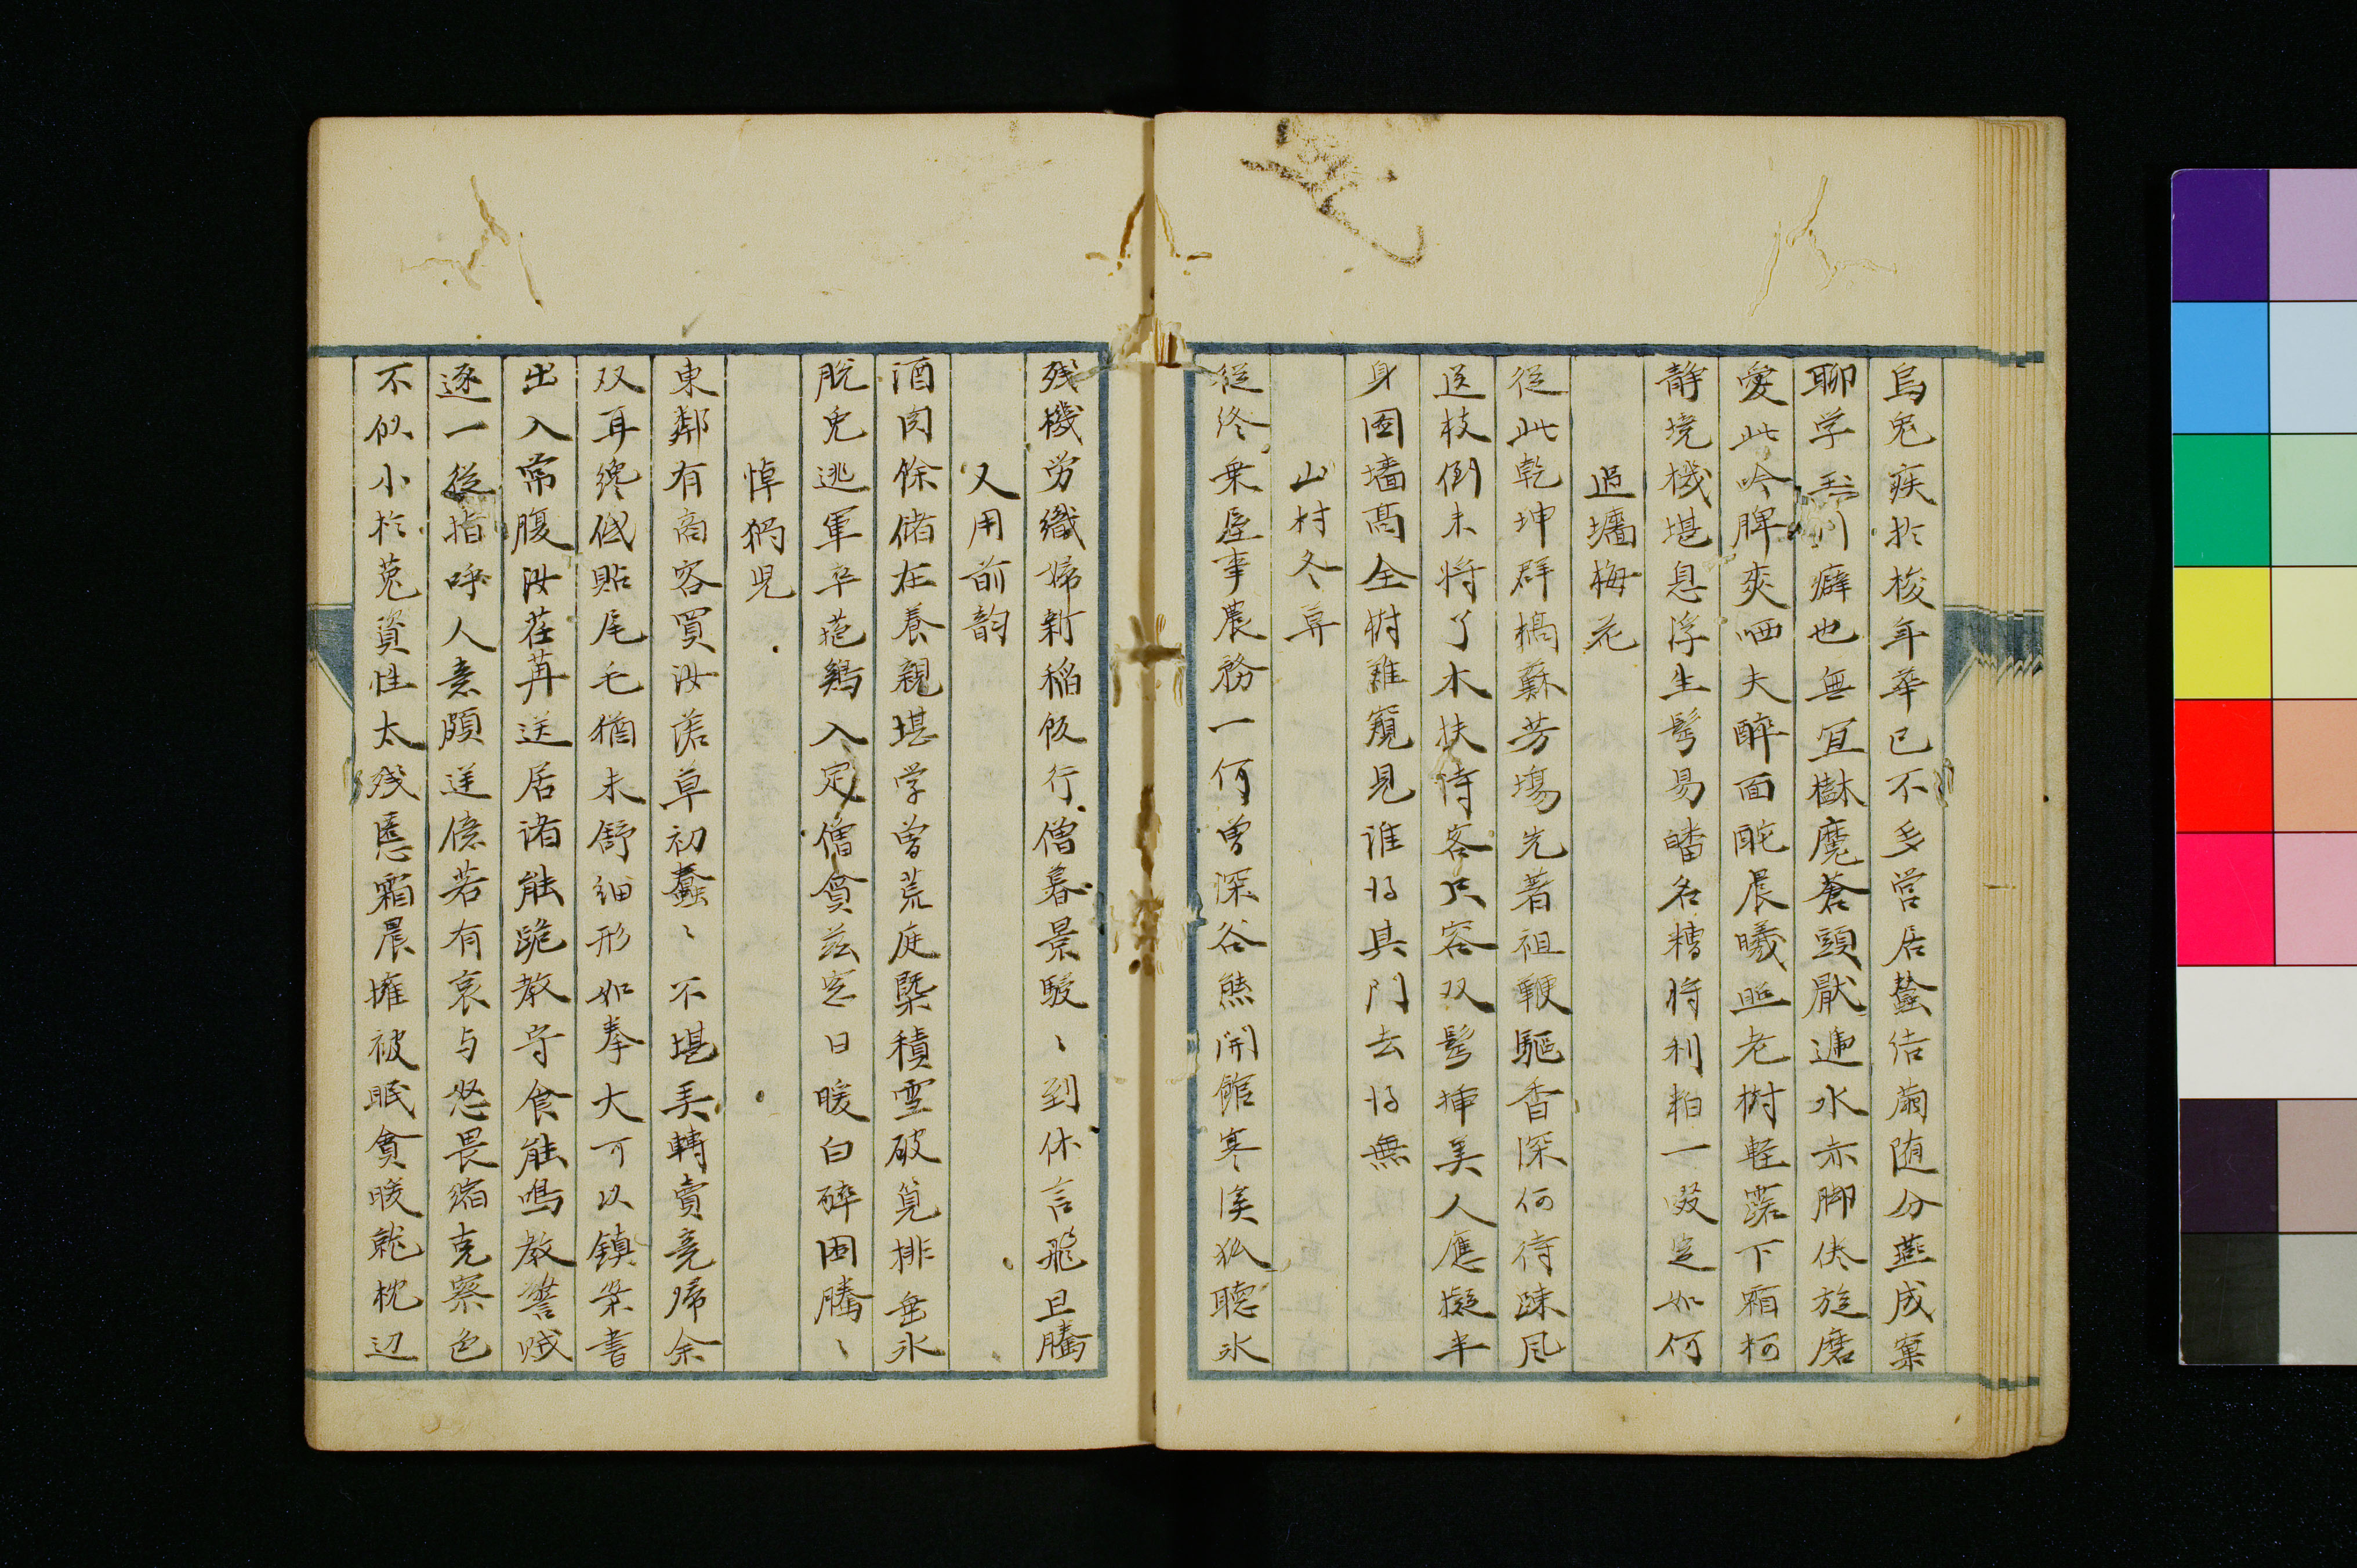 烏兎疾於梭年華已不多営居蟄佶繭随分燕成窠
聊学玉川癖也無冝樾魔蒼頭厭逓水赤脚倦旋磨
愛此吟脾爽哂夫醉面酡晨曦照老樹軽霑下霜柯
静境機堪息浮生髩易皤名糟将利粕一啜定如何
過墻梅花
従此乾坤群槁蘇芳場先着祖鞭驅香深何待踈風
送枝倒未将了木扶侍客只容双髩挿美人應擬半
身図墻高全樹難窺見誰為其門去為無
山村冬㫒
従終乗屋事農務一何曽深谷熊開館寒渓狐聴氷
残機労織婦新稲飯行僧暮景駸〻到休言飛且騰
又用前韵
酒肉餘儲在養親堪学曽荒庭槩積雪破筧排垂氷
脱兎逃軍卒菢鶏入定僧貪茲窓日暖白碎困騰〻
悼猧児
東鄰有商客買汝溠草初蠢〻不堪美轉賣竟帰余
双耳纔低貼尾毛猶未舒細形如拳大可以鎮架書
出入常腹汝荏苒送居諸能跪教守食能鳴教警賊
逐一従指呼人意頗逆億若有哀与怒畏縮克察色
不似小於菟資性太残慝霜晨擁被眠貪暖就枕辺